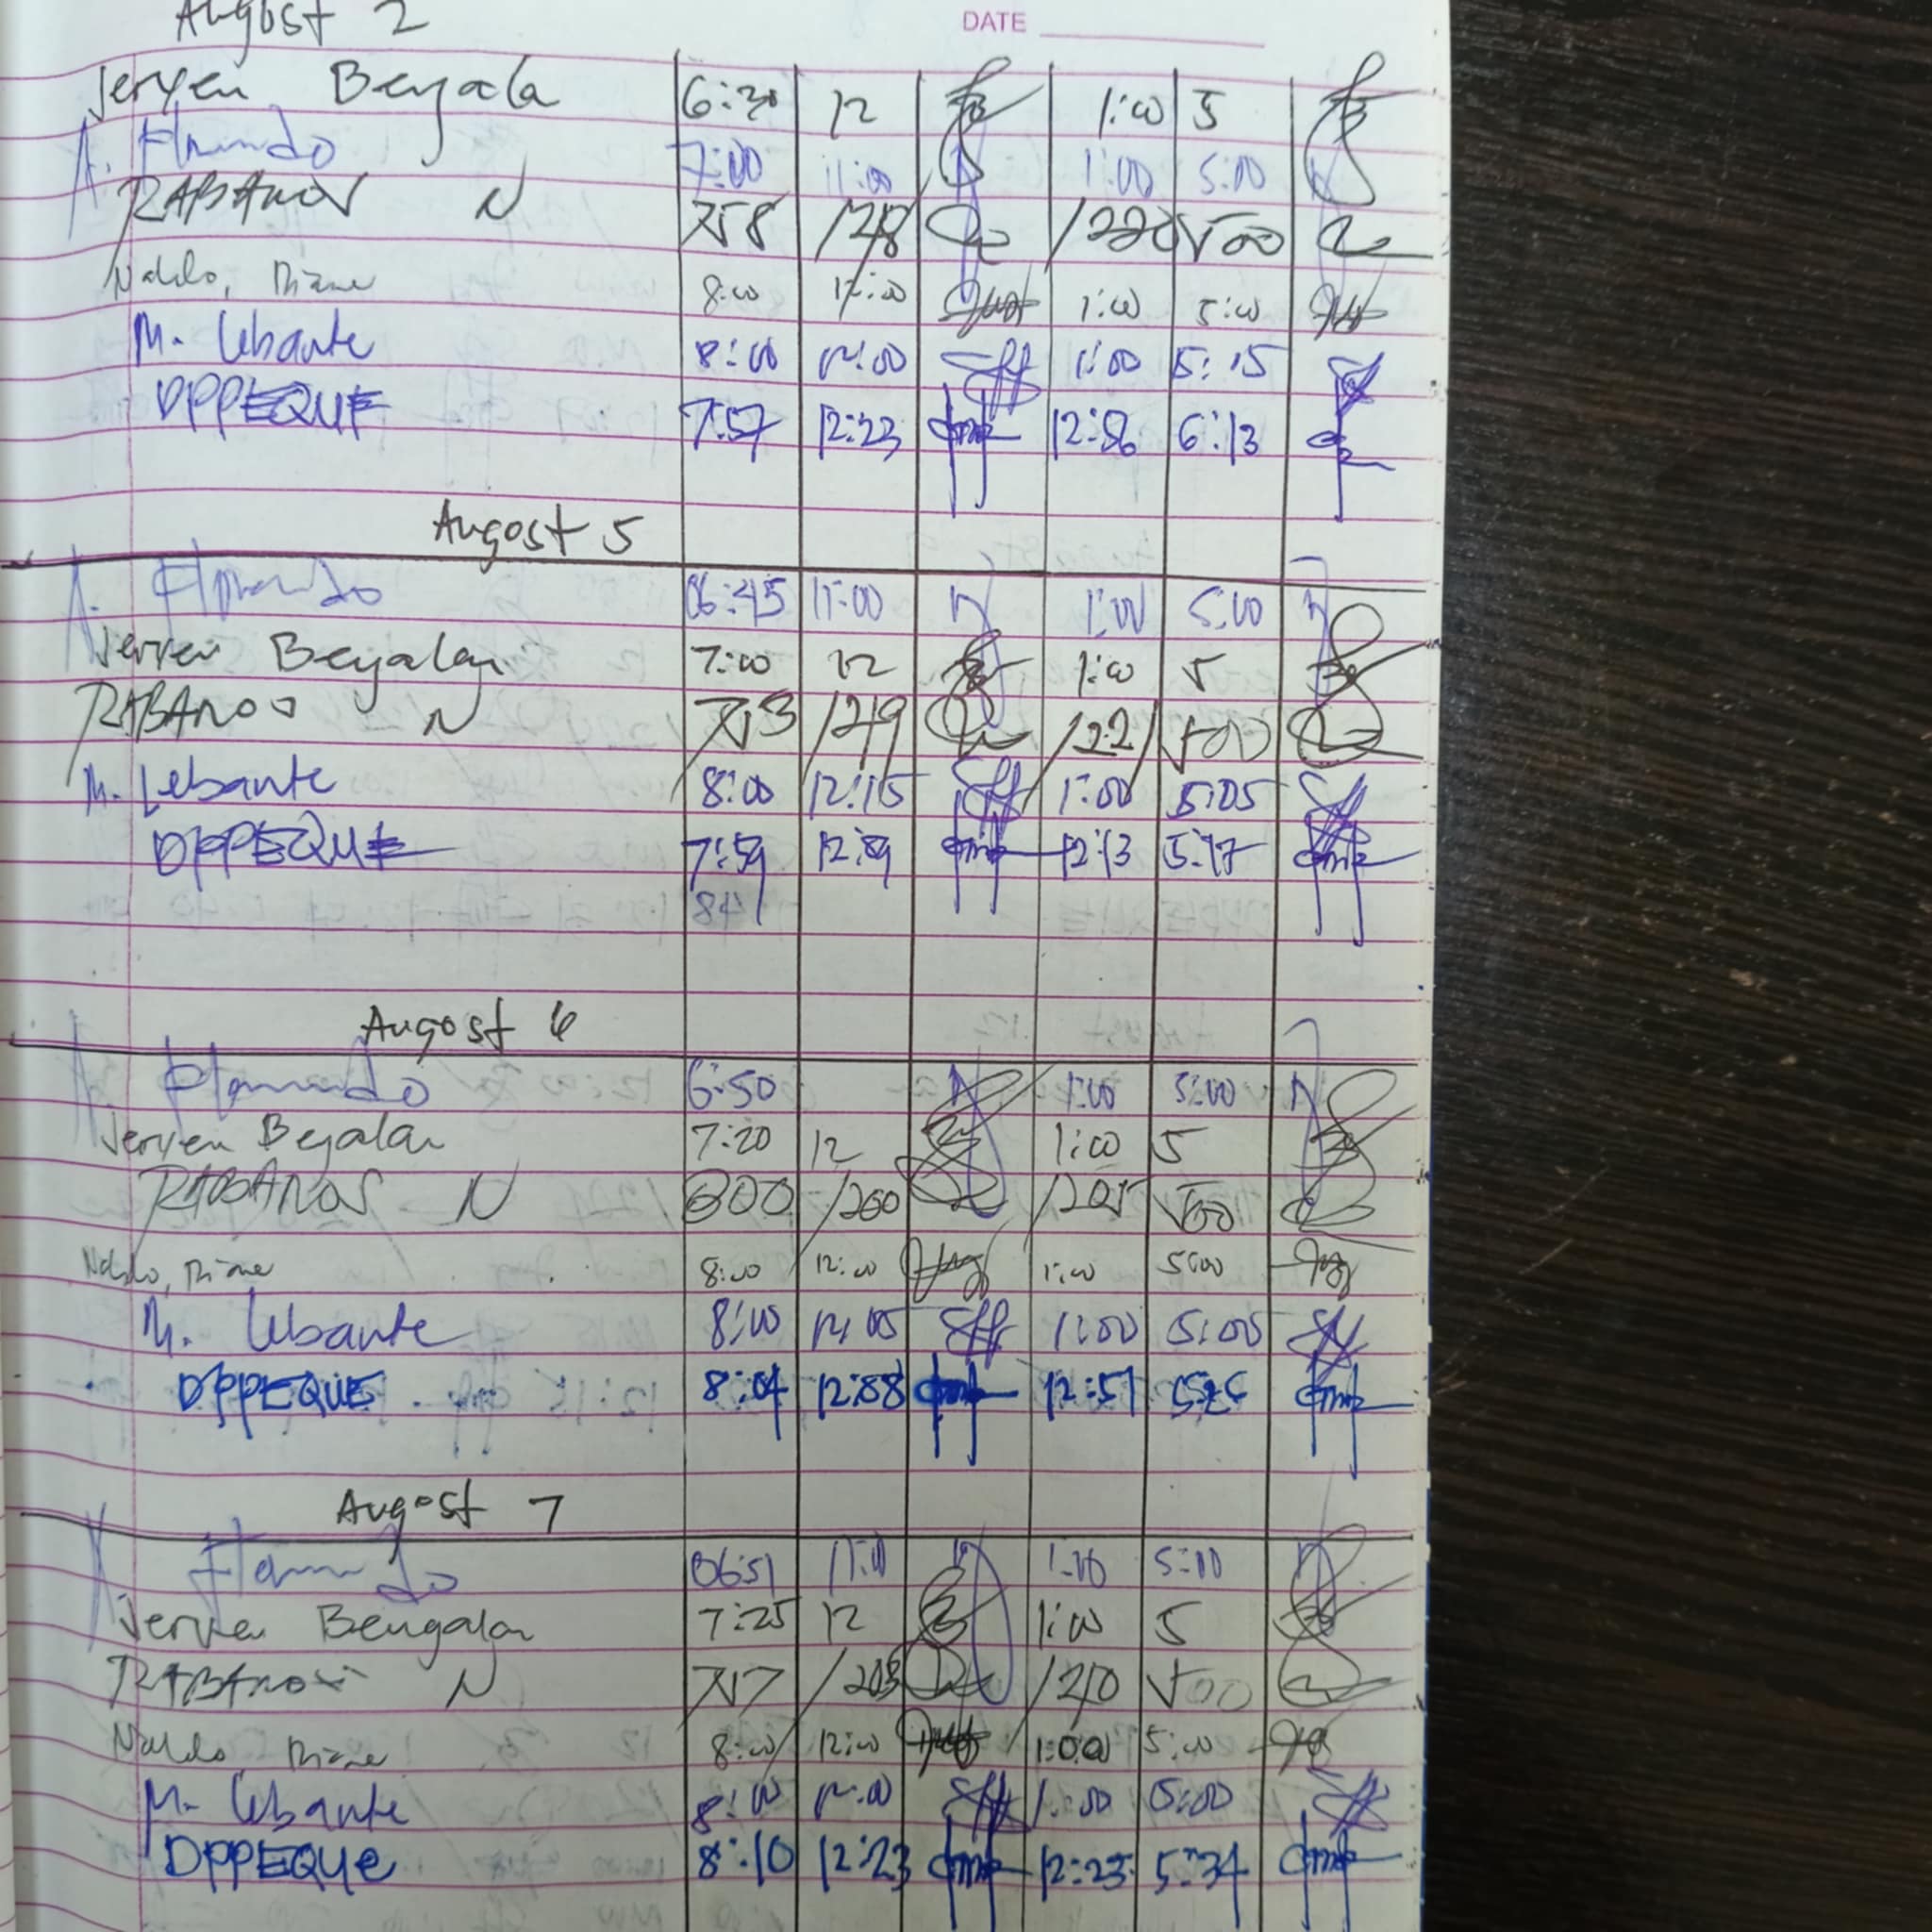 August 2
DATE
Jeryen Bengala 6:30 12 1:00 5
A. Flamando 7:00 11:00 1:00 5:00
RABANOS N 758 1218 1220 500
Naldo, Diane 8:00 12:00 1:00 5:00
M. Lebante 8:00 12:00 1:00 5:15
DPPEQUE 7:57 12:23 12:56 6:13
Augost 5
A. Flamando 06:45 11:00 1:00 5:00
Jeryen Bengalan 7:00 12 1:00 5
RABANOS N 753 1219 1221 500
M. Lebante 8:00 12:15 1:00 5:05
DPPEQUE 7:59 12:13 5:17
841
Augost 6
A. Flamando 6:50 1:00 5:00
Jeryen Bengalan 7:20 12 1:00 5
RABANOS N 800 1200 1205 500
Naldo, Diane 8:00 12:00 1:00 5:00
M. Lebante 8:00 12:05 1:00 5:05
DPPEQUE 8:04 12:51
Augost 7
A. Flamando 0651 11:00 1:00 5:00
Jeryen Bengalan 7:25 12 1:00 5
RABANOS N 757 1208 1210 500
Naldo, Diane 8:00 12:00 1:00 5:00
M. Lebante 8:00 12:00 1:00 5:00
DPPEQUE 8:10 12:23 12:23 5:34